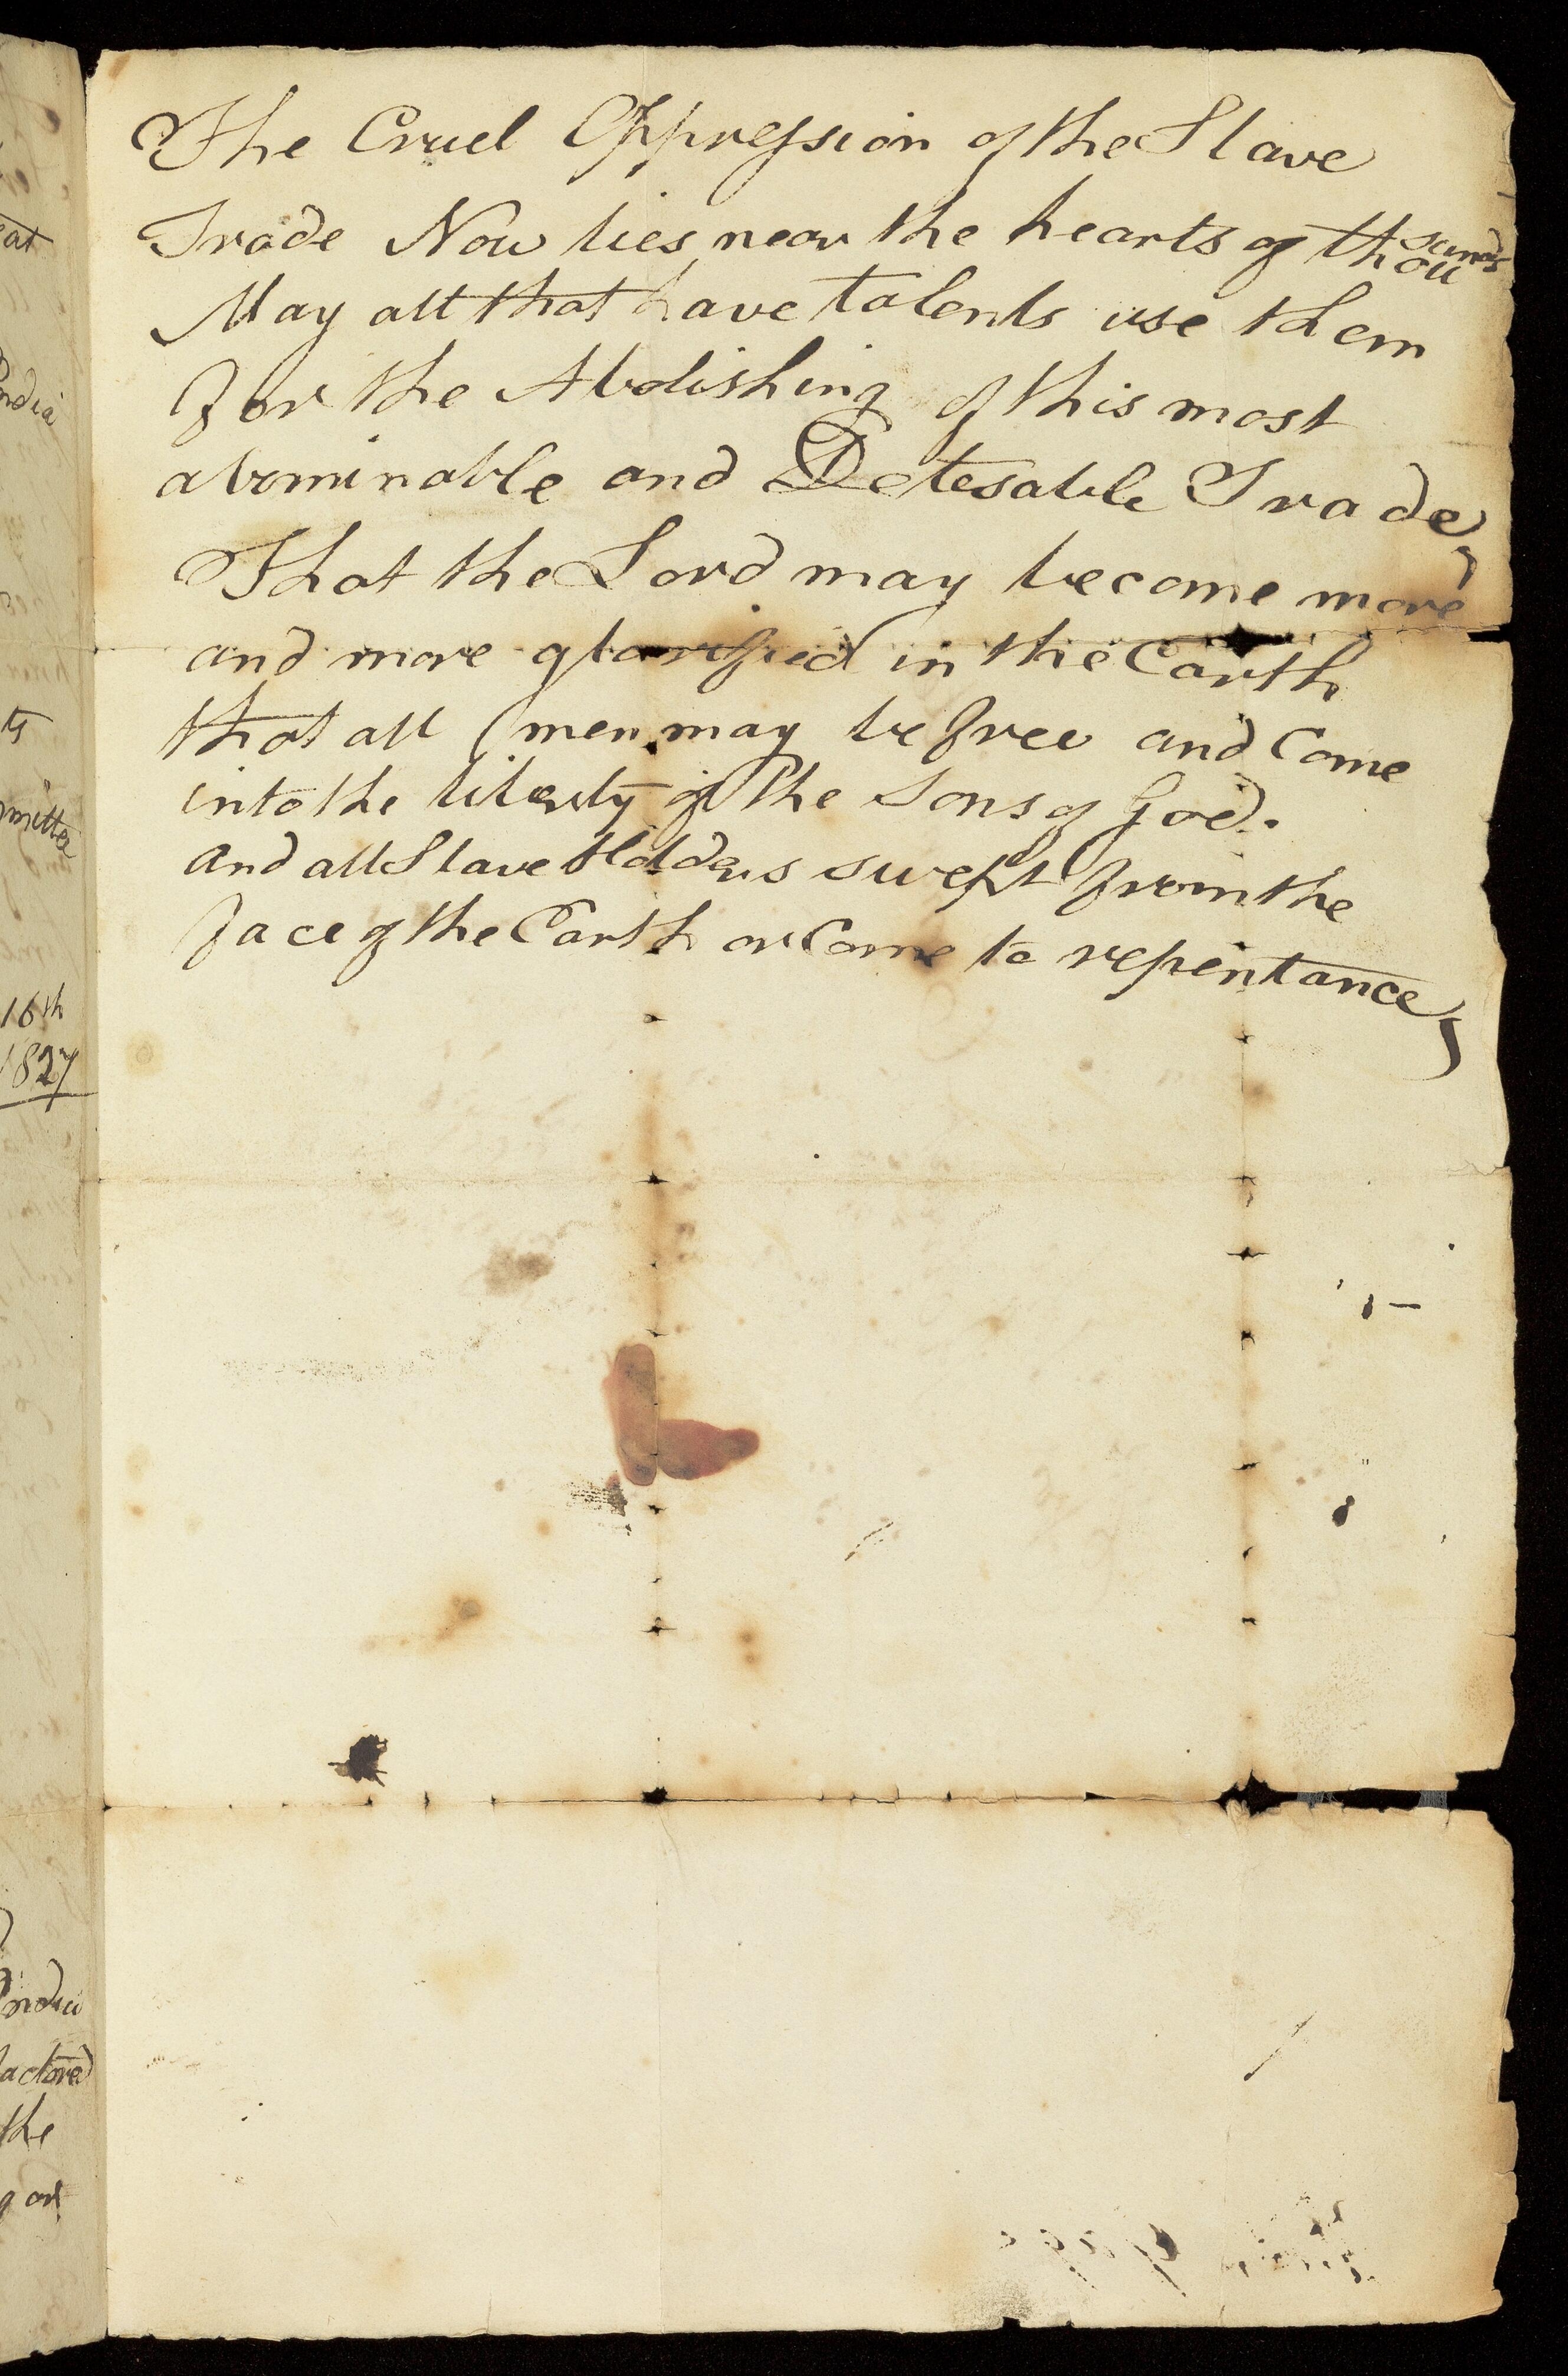 The Cruel Oppression of the Slave
Trade Now lies near the hearts of thousands
May all that have talents use them
for the Abolishing of this most
abominable and Detesable Trade,
That the Lord may become more
and more glorified in the Earth
that all men may be free and Come
into the liberty of the Sons of God.
and all Slave Holders swept from the
face of the Earth or Come to repentance,
at
ndia
ts
mittee
16th
1827
India
factored
the